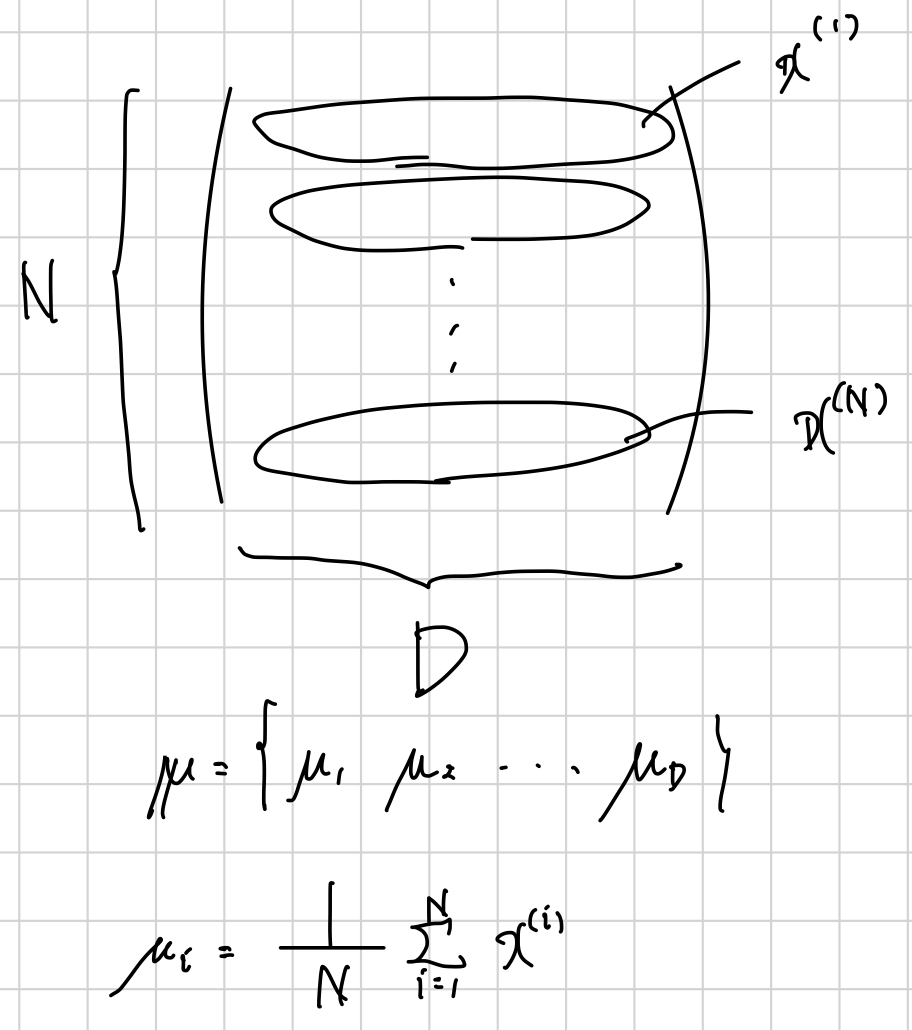 x^{(1)}
N
x^{(N)}
D
μ = { μ_1 μ_2 ⋯ μ_D }
μ_i = \frac{1}{N} \sum_{i=1}^{N} x^{(i)}